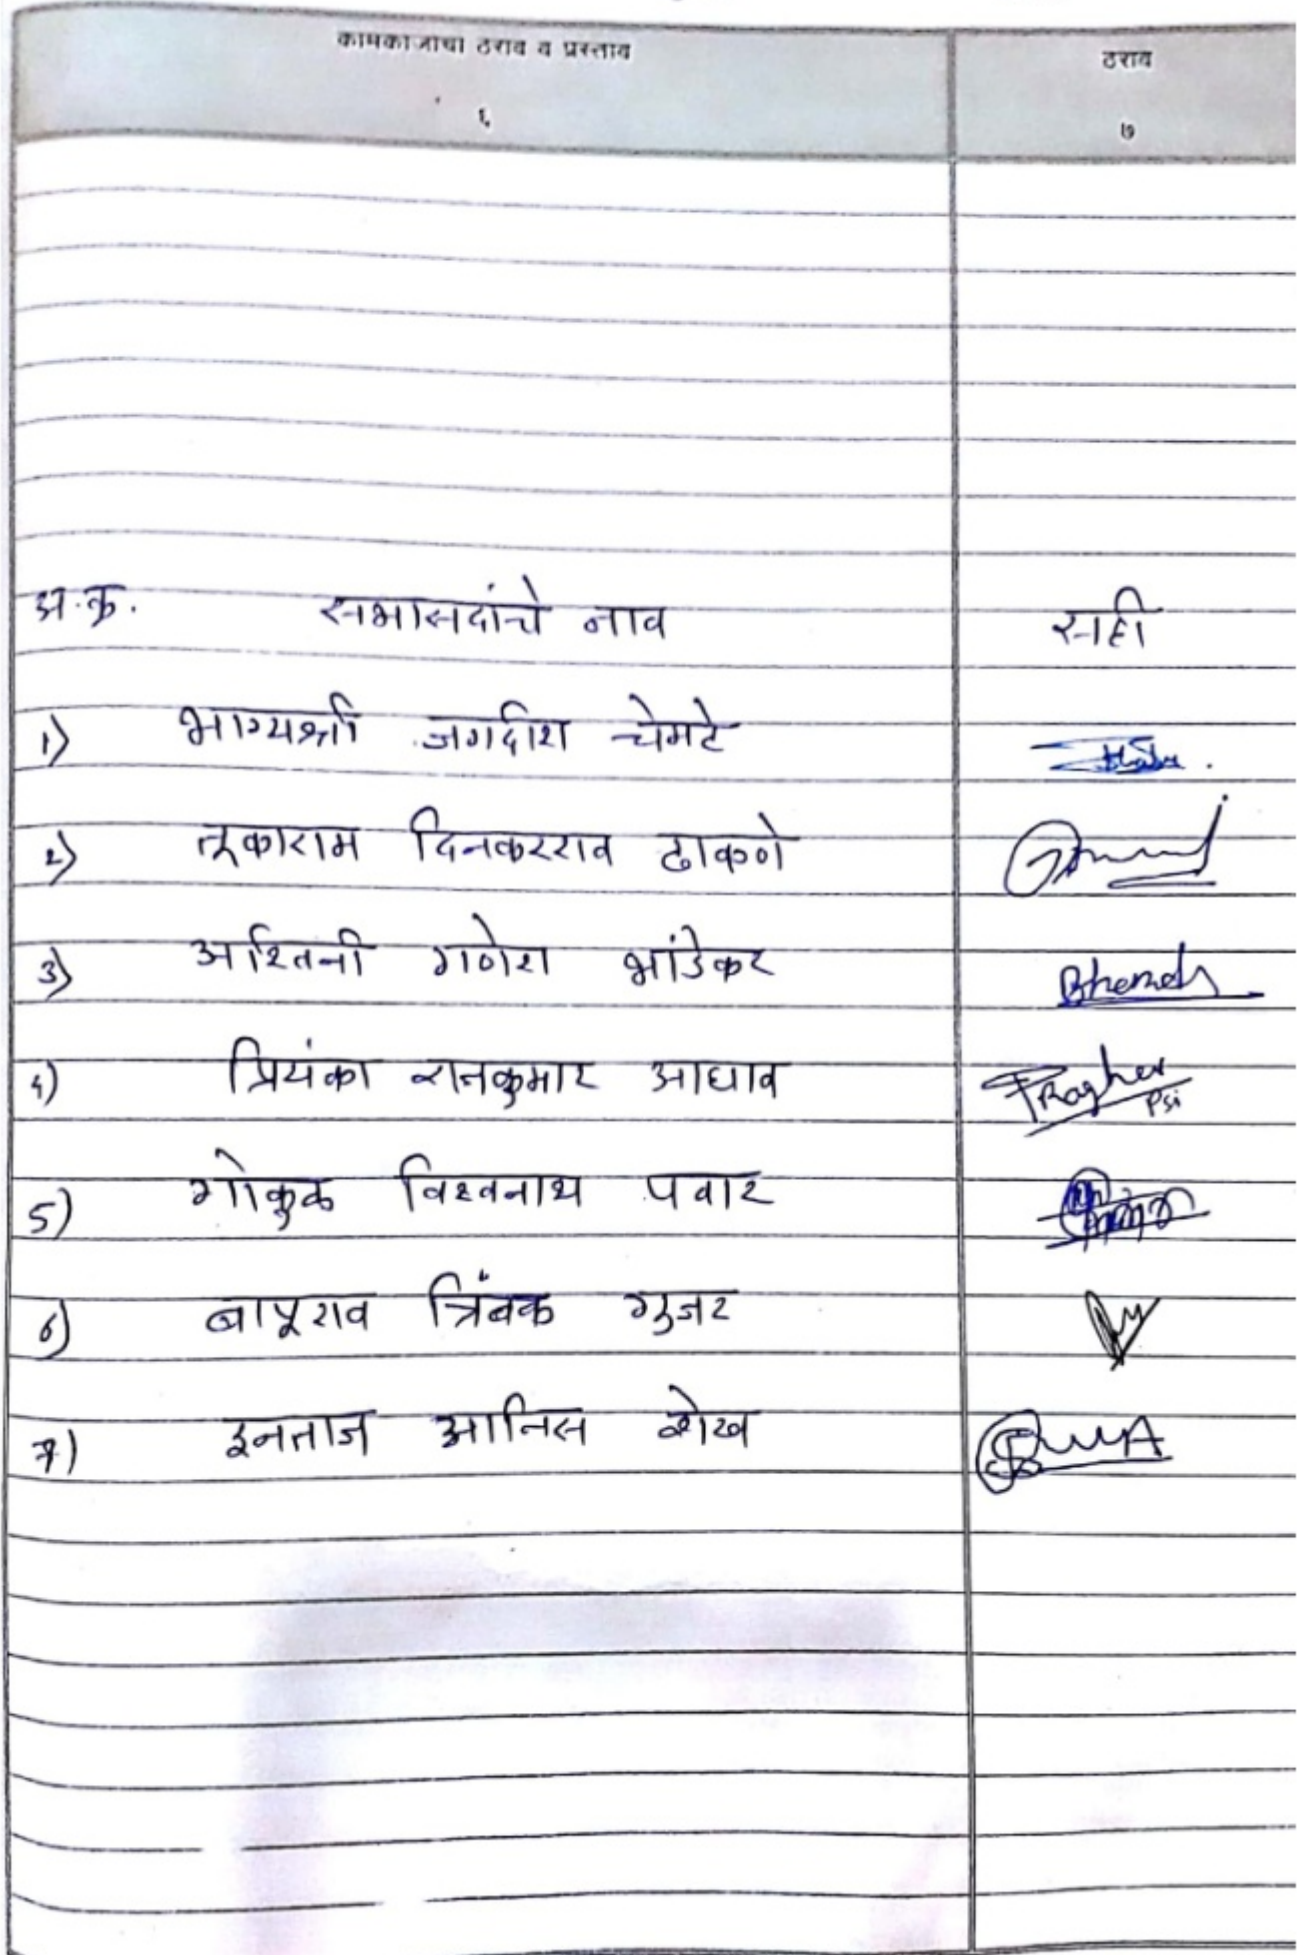 कामकाजाचा ठराव व प्रस्ताव ठराव
६ ७
अ.क्र. सभासदांचे नाव सही
1) भाग्यश्री जगदीश चेमटे
2) तूकाराम दिनकरराव ढाकणे
3) अश्विनी गणेश भांडेकर
4) प्रियंका राजकुमार आघाव Psi
5) गोकुळ विश्वनाथ पवार
6) बापूराव त्रिंबक गुजर
7) इनताज आनिस शेख